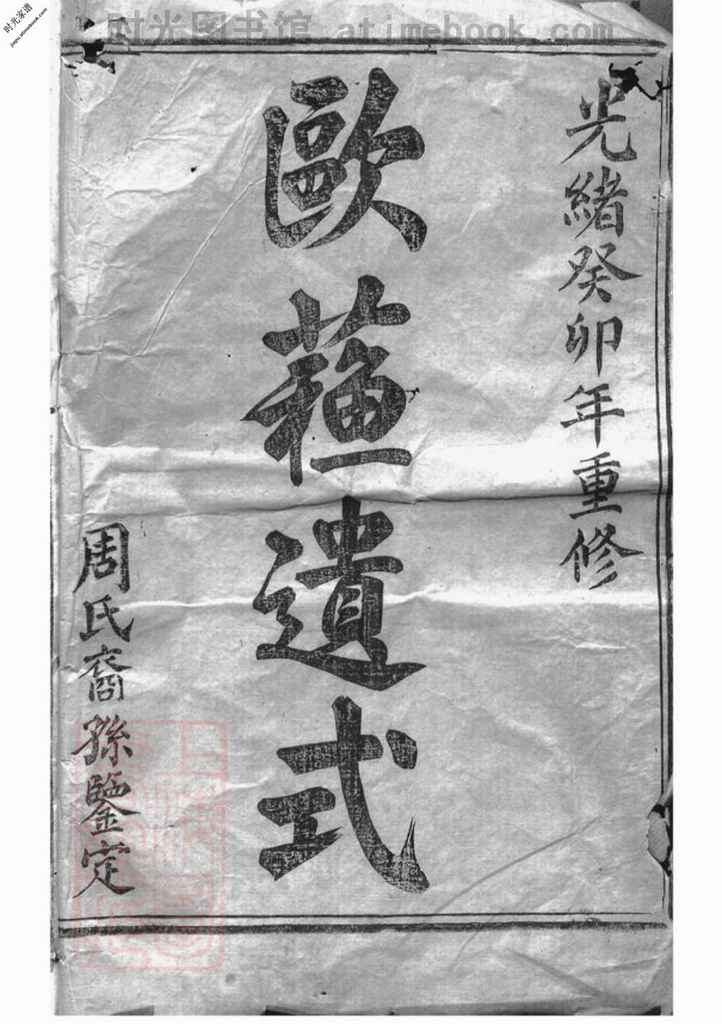 时光家谱
jiapu.atimebook.com
时光图书馆 www.atimebook.com
光緒癸卯年重修
歐蘓遺式
周氏裔孫鑒定